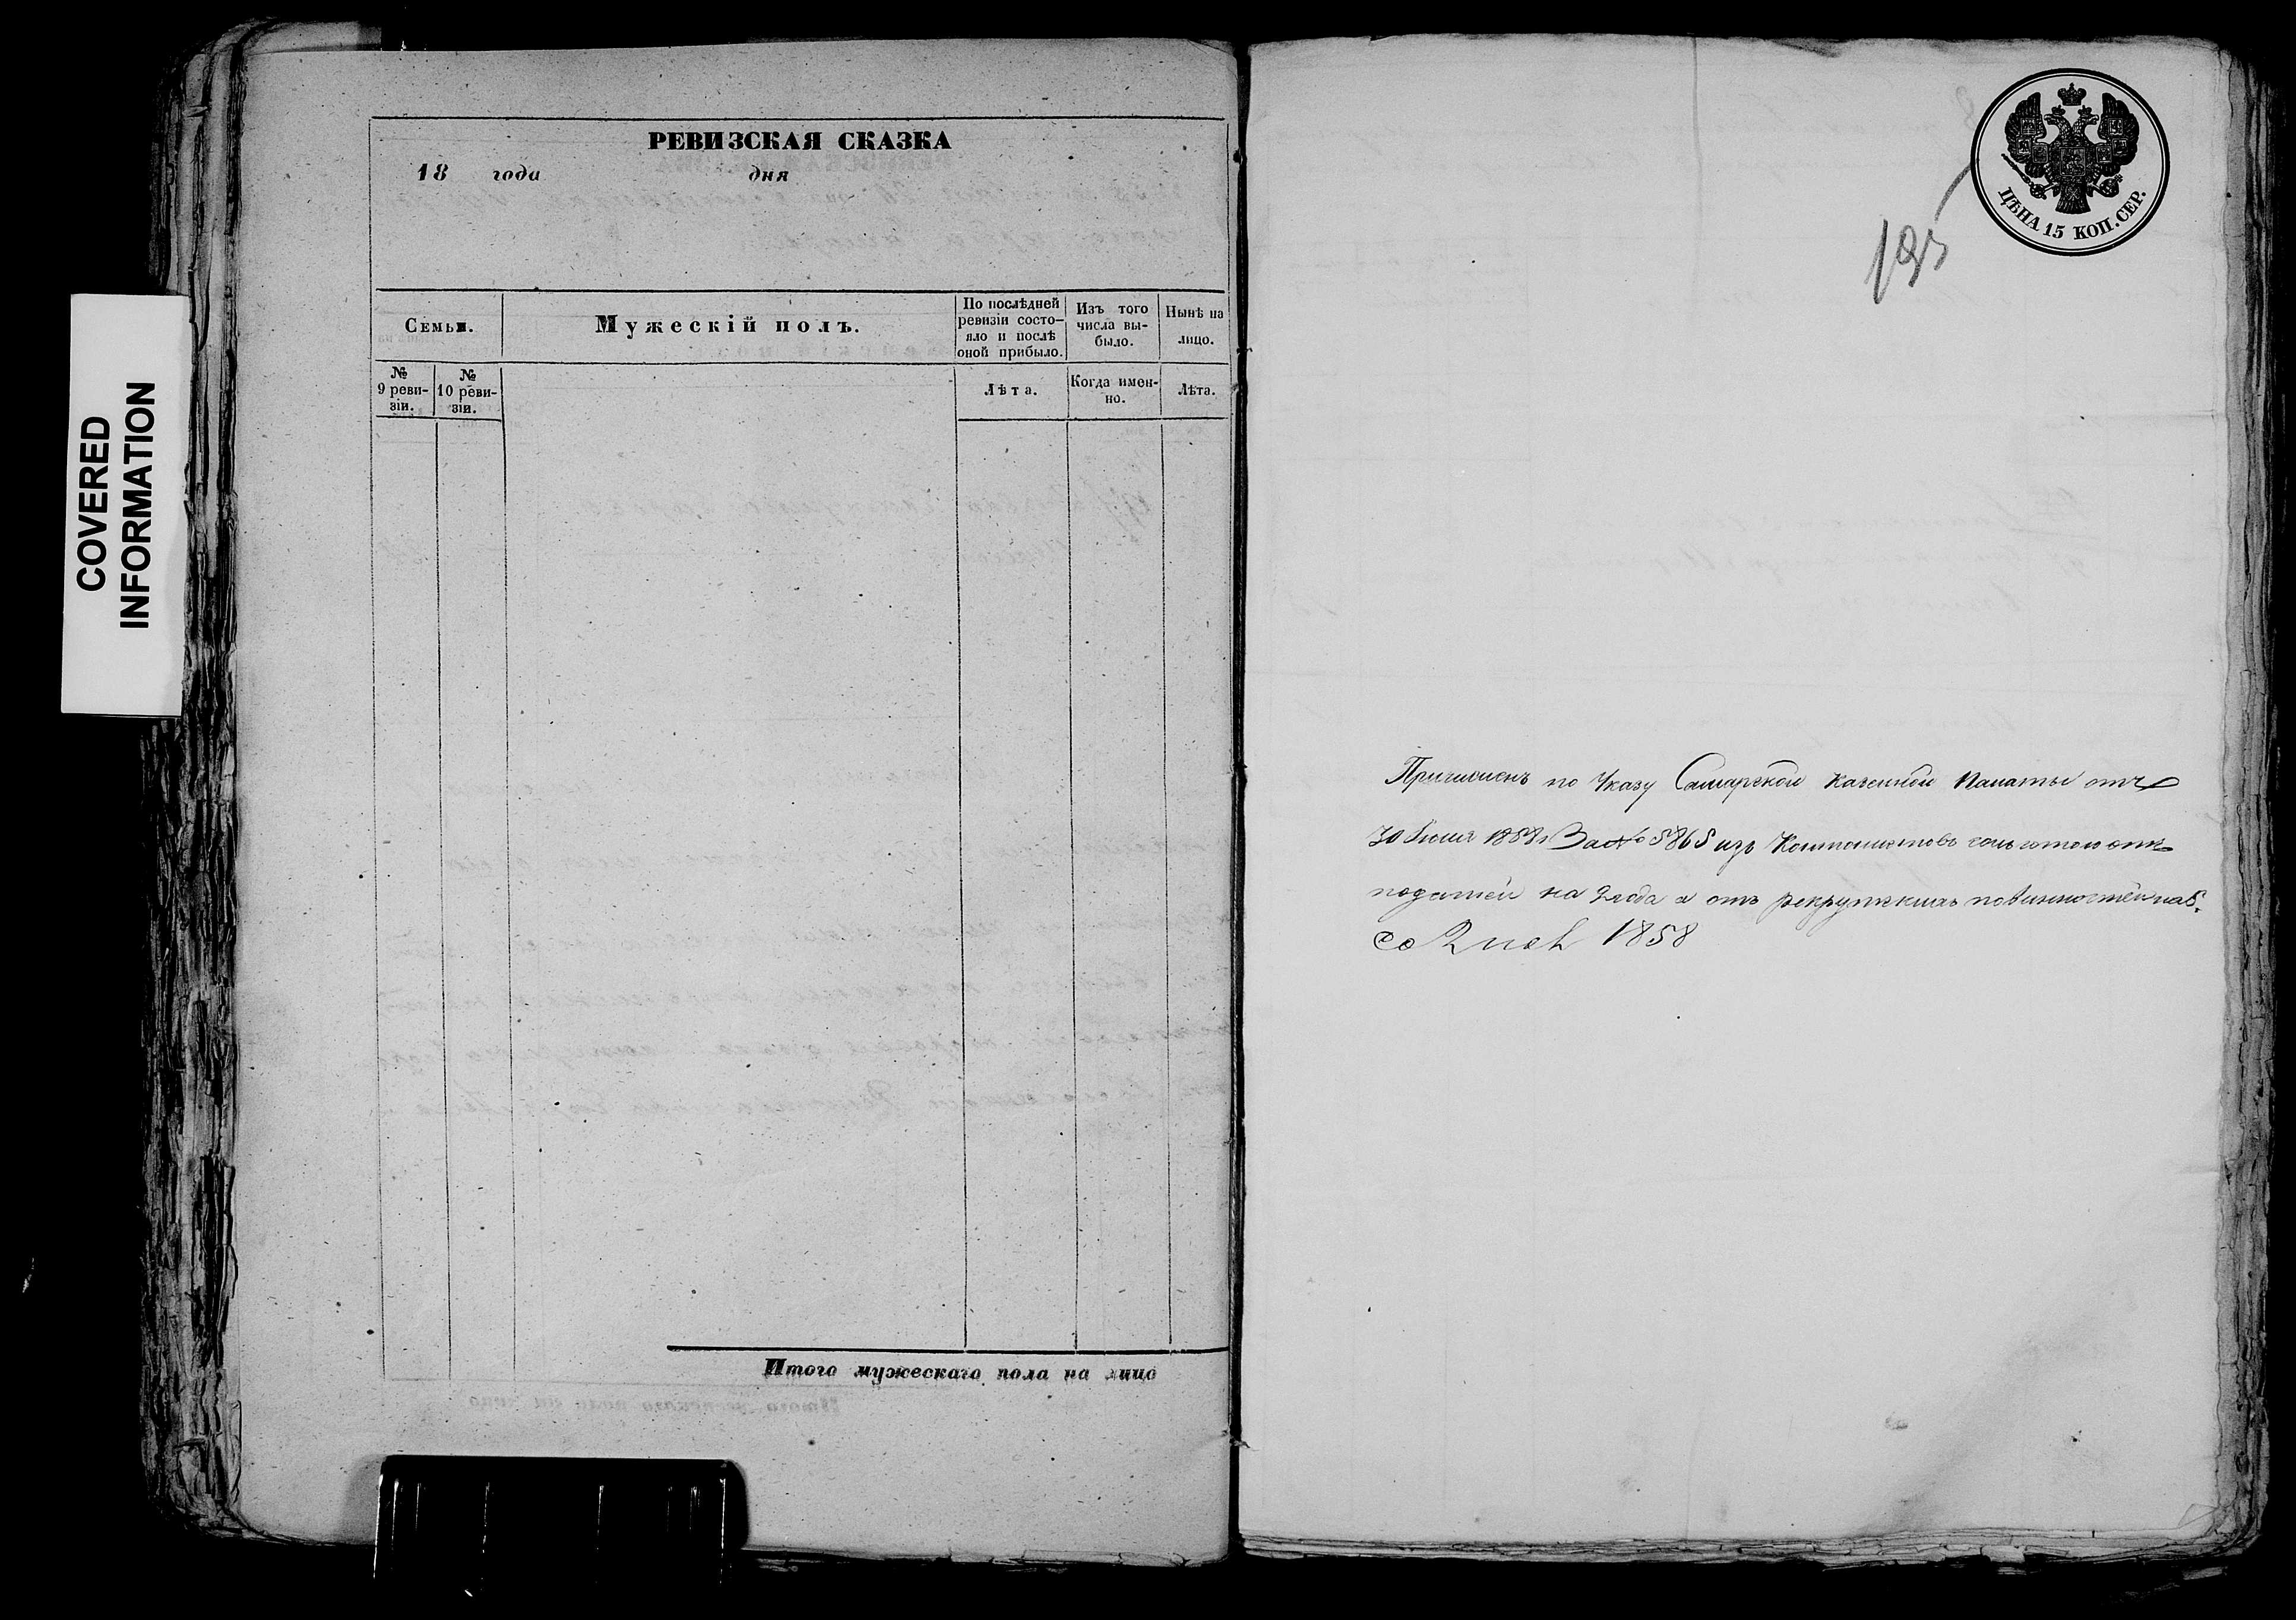 COVERED
INFORMATION
РЕВИЗСКАЯ СКАЗКА
18 года дня
Семьи.
Мужескій полъ.
По послѣдней
ревизіи состо-
яло и послѣ
оной прибыло.
Изъ того
числа вы-
было.
Нынѣ на
лицо.
№
9 реви-
зіи.
№
10 реви-
зіи.
Лѣта.
Когда имен-
но.
Лѣта.
Итого мужескаго пола на лицо
ЦѢНА 15 КОП. СЕР.
195
Причисленъ по Указу Самарской Казенной Палаты отъ
30 Июля 1858 За № 5865 изъ Кантонистовъ
податей на 2 года а отъ рекрутскихъ повинностей на
1858